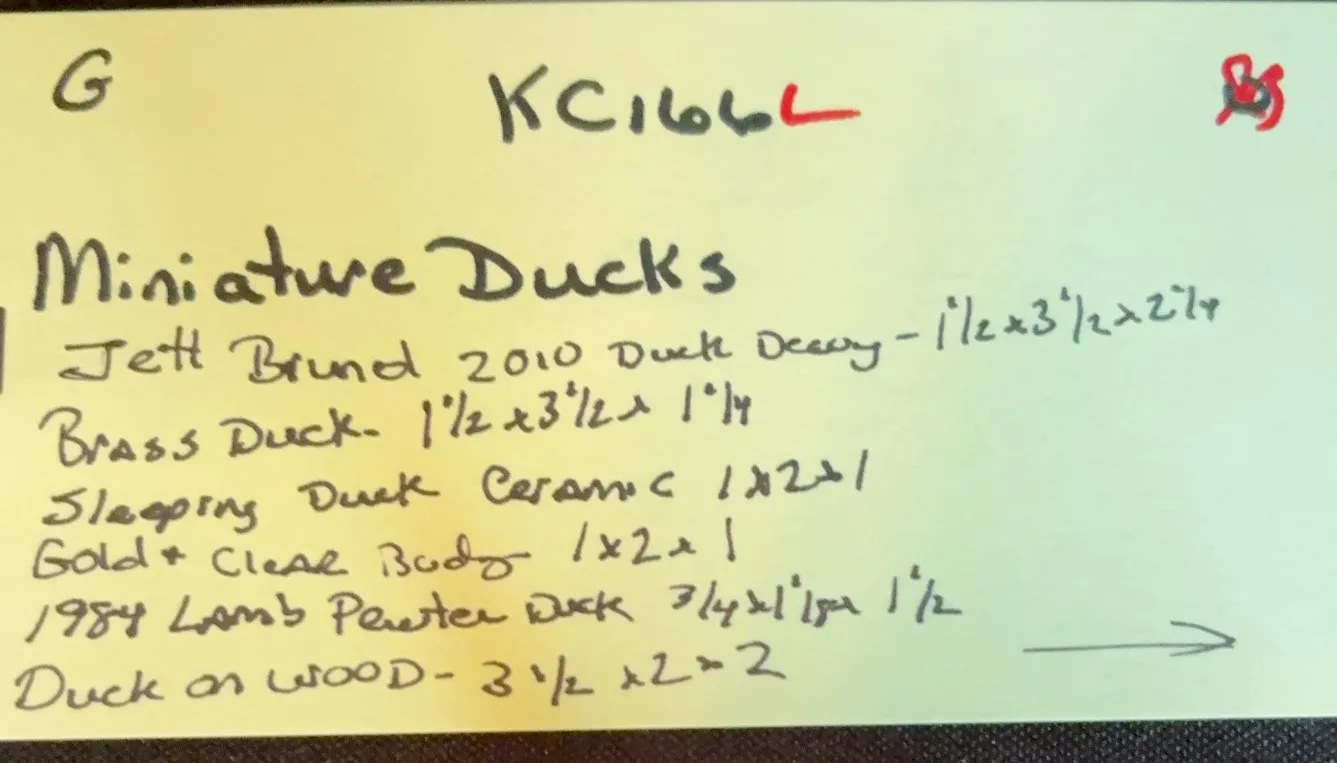 G KC166L
Miniature Ducks
Jett Brund 2010 Duck Decoy - 1 1/2 x 3 1/2 x 2 1/4
Brass Duck - 1 1/2 x 3 1/2 x 1 1/4
Sleeping Duck Ceramic 1 x 2 x 1
Gold + Clear Body 1 x 2 x 1
1984 Lamb Pewter Duck 3/4 x 1 1 1/2
Duck on WOOD - 3 1/2 x 2 x 2